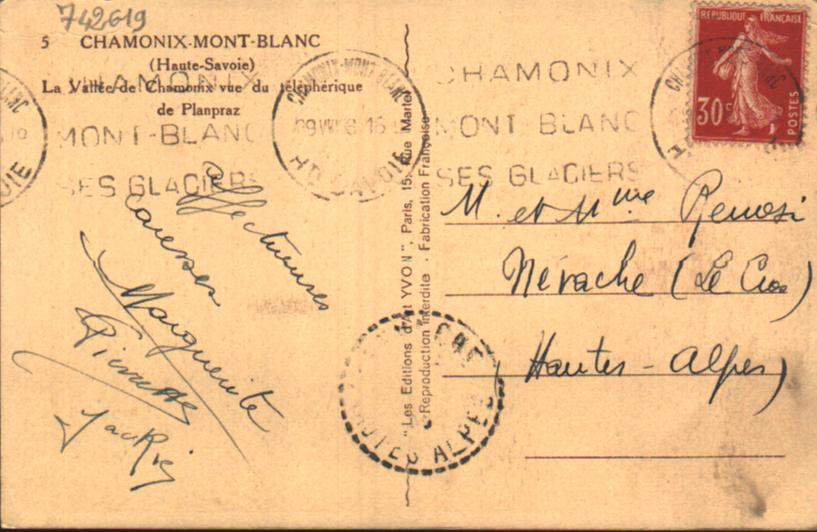 742619
5 CHAMONIX-MONT-BLANC
(Haute-Savoie)
La Vallée de Chamonix vue du téléphérique
de Planpraz
CHAMONIX
MONT-BLANC
SES GLACIERS
CHAMONIX-MONT-BLANC
HTE SAVOIE
CHAMONIX
MONT BLANC
SES GLACIERS
REPUBLIQUE FRANÇAISE
30c
POSTES
affectueuses
caresses
Marguerite
Pierrette
Jackie
"Les Editions d'Art YVON", Paris, 15, Rue Martel
Reproduction Interdite - Fabrication Française
M. et Mme
Névache (Le Cros)
Hautes-Alpes)
HAUTES ALPES